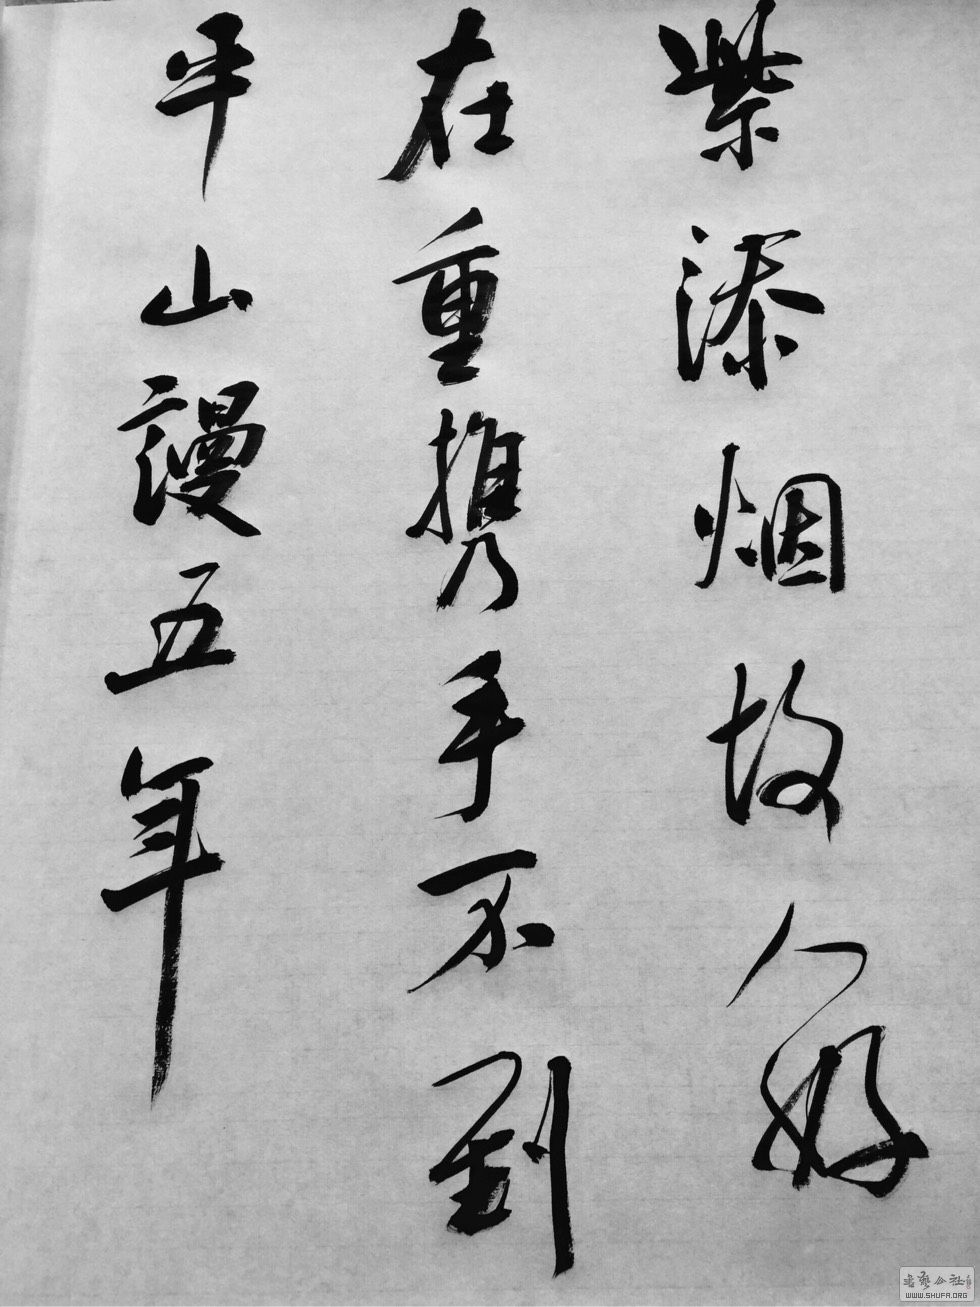 紫添烟故人好
在重携手不到
平山谩五年
书艺公社
WWW.SHUFA.ORG